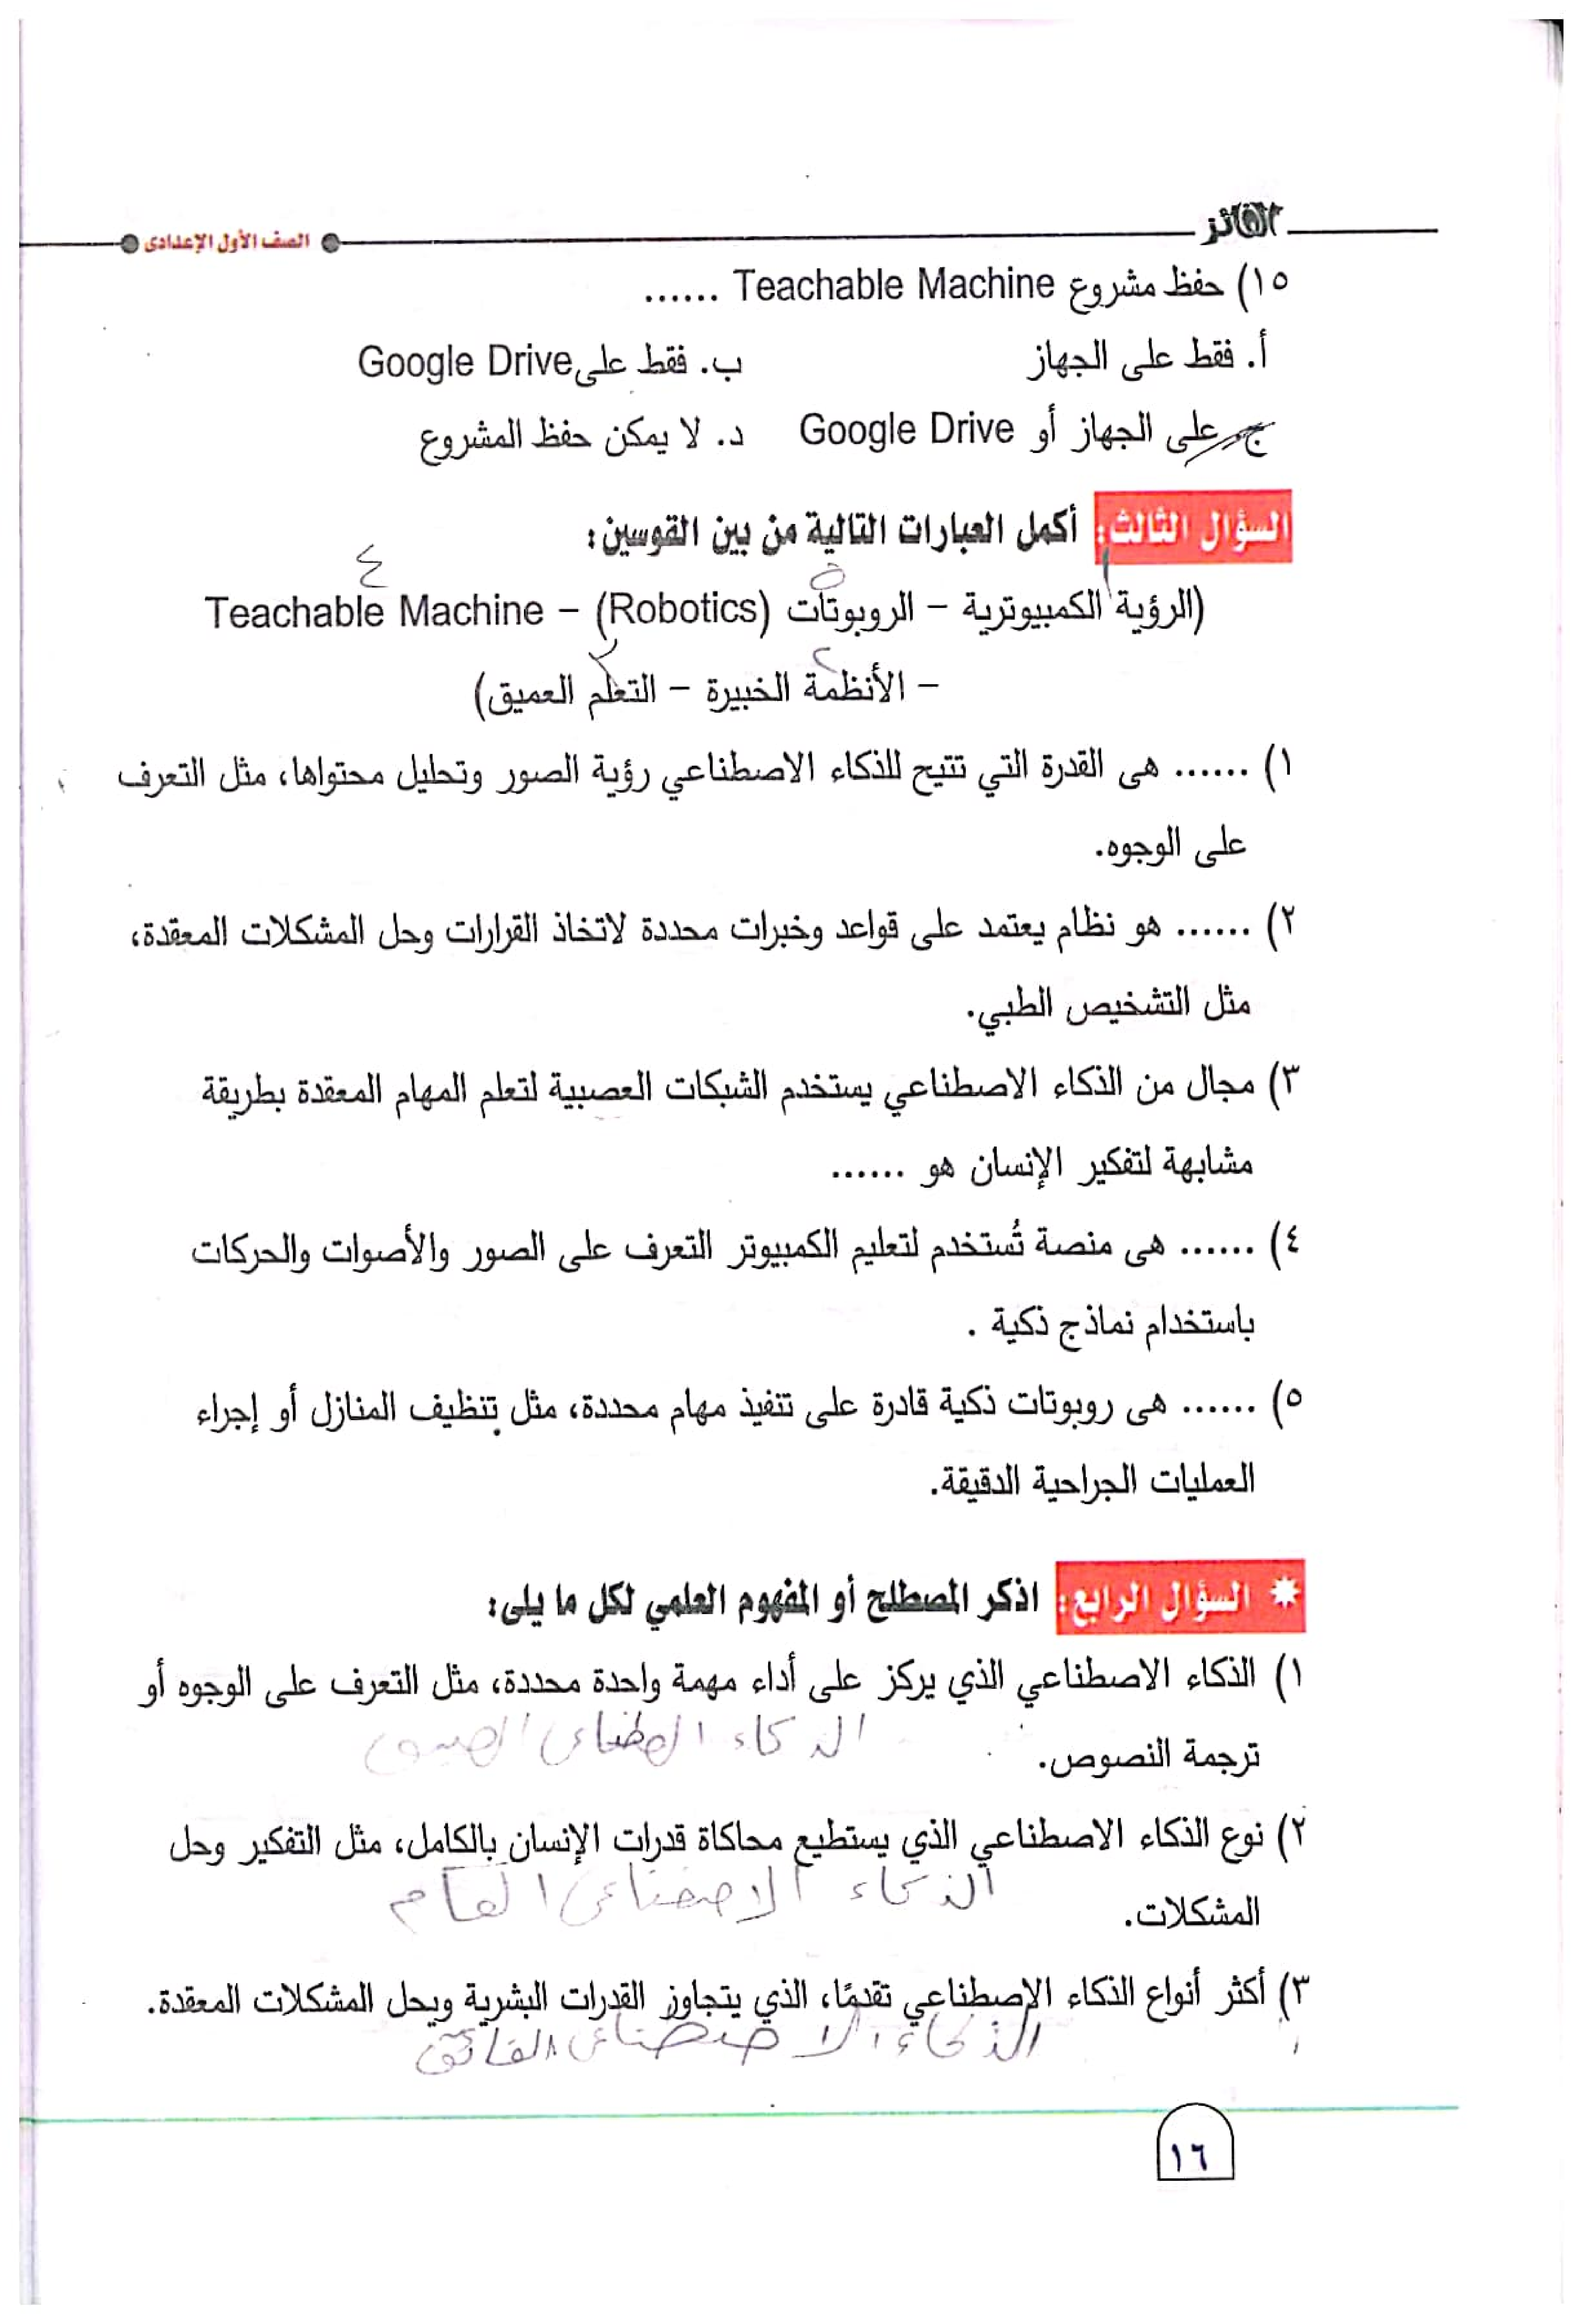 الفائز
الصف الأول الإعدادى
١٥) حفظ مشروع Teachable Machine ......
أ. فقط على الجهاز ب. فقط على Google Drive
ج. على الجهاز أو Google Drive د. لا يمكن حفظ المشروع
السؤال الثالث: أكمل العبارات التالية من بين القوسين:
٤ ٥ ١
(الرؤية الكمبيوترية – الروبوتات (Robotics) – Teachable Machine
٣ ٢
– الأنظمة الخبيرة – التعلم العميق)
١) ...... هى القدرة التي تتيح للذكاء الاصطناعي رؤية الصور وتحليل محتواها، مثل التعرف
على الوجوه.
٢) ...... هو نظام يعتمد على قواعد وخبرات محددة لاتخاذ القرارات وحل المشكلات المعقدة،
مثل التشخيص الطبي.
٣) مجال من الذكاء الاصطناعي يستخدم الشبكات العصبية لتعلم المهام المعقدة بطريقة
مشابهة لتفكير الإنسان هو ......
٤) ...... هى منصة تُستخدم لتعليم الكمبيوتر التعرف على الصور والأصوات والحركات
باستخدام نماذج ذكية .
٥) ...... هى روبوتات ذكية قادرة على تنفيذ مهام محددة، مثل تنظيف المنازل أو إجراء
العمليات الجراحية الدقيقة.
السؤال الرابع: اذكر المصطلح أو المفهوم العلمي لكل ما يلى:
١) الذكاء الاصطناعي الذي يركز على أداء مهمة واحدة محددة، مثل التعرف على الوجوه أو
ترجمة النصوص. الذكاء
٢) نوع الذكاء الاصطناعي الذي يستطيع محاكاة قدرات الإنسان بالكامل، مثل التفكير وحل
المشكلات. الذكاء الاصطناعى العام
٣) أكثر أنواع الذكاء الإصطناعي تقدمًا، الذي يتجاوز القدرات البشرية ويحل المشكلات المعقدة.
الذكاء الاصطناعى الفائق
١٦